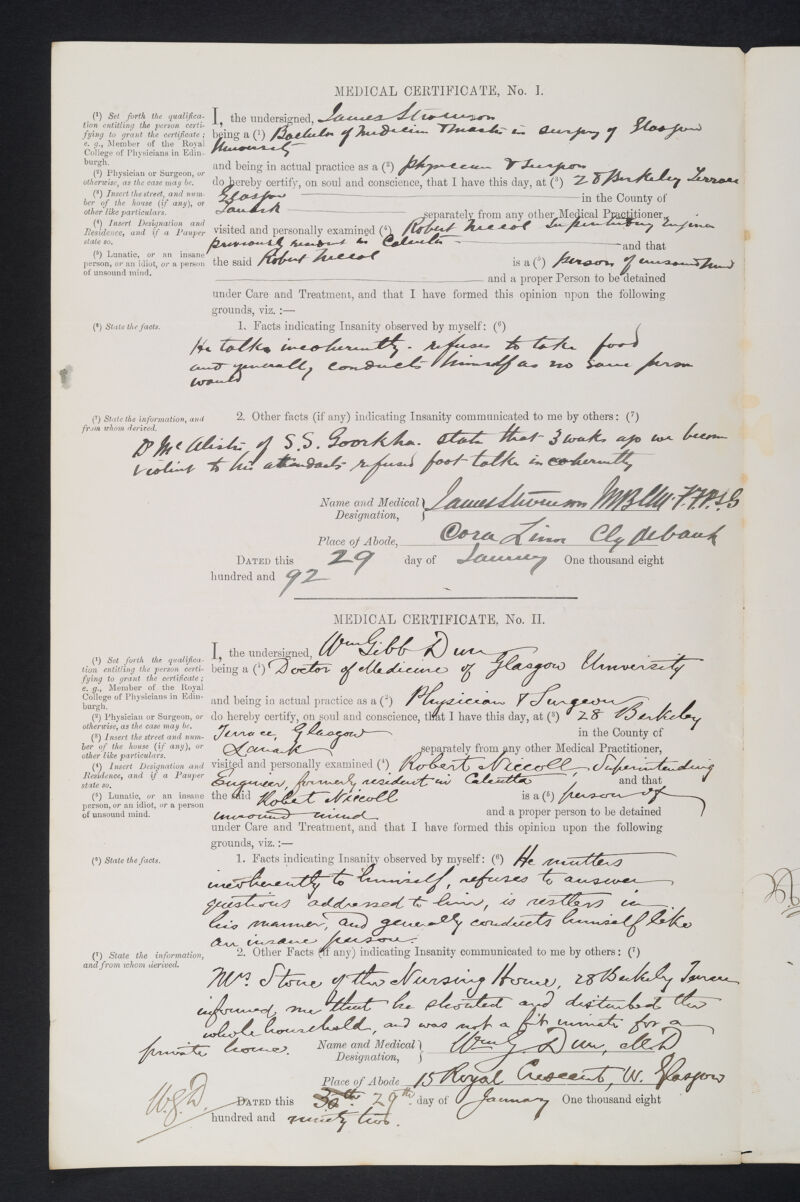 MEDICAL CERTIFICATE, No. I.
(¹) Set forth the qualifica-
tion entitling the person certi-
fying to grant the certificate;
e. g., Member of the Royal
College of Physicians in Edin-
burgh.
(²) Physician or Surgeon, or
otherwise, as the case may be.
(³) Insert the street, and num-
ber of the house (if any), or
other like particulars.
(⁴) Insert Designation and
Residence, and if a Pauper
state so.
(⁵) Lunatic, or an insane
person, or an idiot, or a person
of unsound mind.
I, the undersigned, James Stevenson
being a (¹) Bachelor of Medicine & Master in surgery of Glasgow
University
and being in actual practice as a (²) Physician & Surgeon
do hereby certify, on soul and conscience, that I have this day, at (³) 28 Berkeley Terrace
Glasgow in the County of
Lanark separately from any other Medical Practitioner,
visited and personally examined (⁴) Robert Niccol Superintending Engineer
previously resident in Calcutta and that
the said Robert Niccol is a (⁵) person of unsound mind
and a proper Person to be detained
under Care and Treatment, and that I have formed this opinion upon the following
grounds, viz.:—
(⁶) State the facts.
1. Facts indicating Insanity observed by myself: (⁶)
He talks incoherently - refuses to take food
and generally conducts himself as no sane person
would
(⁷) State the information, and
from whom derived.
2. Other facts (if any) indicating Insanity communicated to me by others: (⁷)
Dr McAlister of S.S. Goorkha. state that 3 weeks ago he became
violent to his attendants refused food talks incoherently
Name and Medical Designation, James Stevenson MB CM. F.F.P.S.G
Place of Abode, Cora Linn Clydebank
DATED this 29 day of January One thousand eight
hundred and 92
MEDICAL CERTIFICATE, No. II.
(¹) Set forth the qualifica-
tion entitling the person certi-
fying to grant the certificate;
e. g., Member of the Royal
College of Physicians in Edin-
burgh.
(²) Physician or Surgeon, or
otherwise, as the case may be.
(³) Insert the street, and num-
ber of the house (if any), or
other like particulars.
(⁴) Insert Designation and
Residence, and if a Pauper
state so.
(⁵) Lunatic, or an insane
person, or an idiot, or a person
of unsound mind.
I, the undersigned, Wm Gibb Dun
being a (¹) Doctor of Medicine of Glasgow University
and being in actual practice as a (²) Physician & Surgeon
do hereby certify, on soul and conscience, that I have this day, at (³) 28 Berkeley
Terrace, Glasgow in the County of
Lanark separately from any other Medical Practitioner,
visited and personally examined (⁴) Robert Niccoll, Superintending
Engineer, formerly resident in Calcutta and that
the said Robert Niccoll is a (⁵) person of
unsound mind and a proper person to be detained
under Care and Treatment, and that I have formed this opinion upon the following
grounds, viz.:—
(⁶) State the facts.
1. Facts indicating Insanity observed by myself: (⁶) He mutters
incoherently to himself, refuses to answer
questions addressed to him, is restless in
his manner, and generally conducts himself like
an insane person.
(⁷) State the information,
and from whom derived.
2. Other Facts (if any) indicating Insanity communicated to me by others: (⁷)
Mrs. Stone of the Nursing Home, 28 Berkeley Terrace
informed me that he shouted and disturbed the
whole household, and was not a fit inmate for a
private home.
Name and Medical Designation, Wm G. Dun, M.D
Place of Abode 15 Royal Crescent, W. Glasgow
W.G.D.
DATED this 30th 29th day of January One thousand eight
hundred and ninety two.